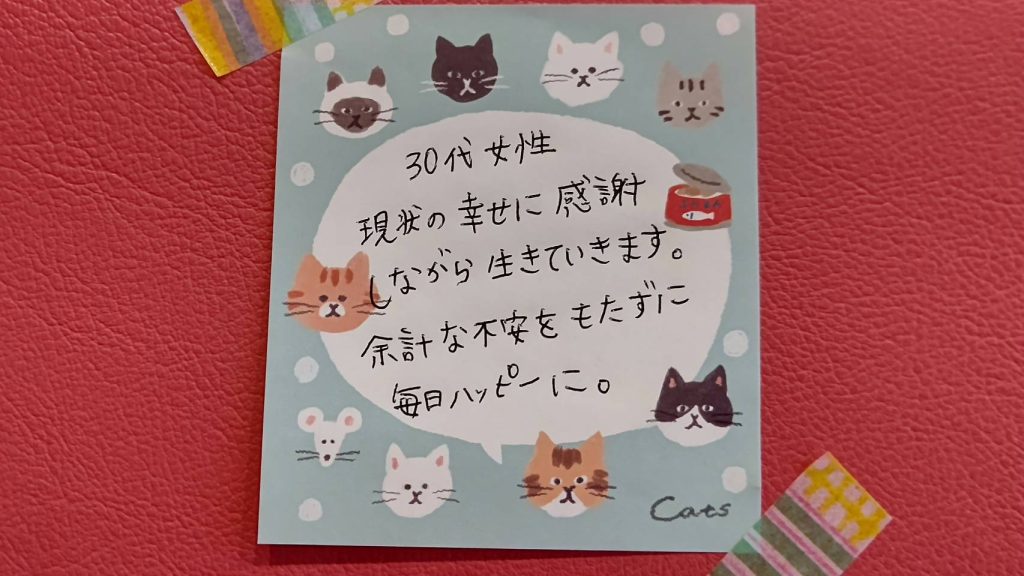 30代女性
現状の幸せに感謝
しながら生きていきます。
余計な不安をもたずに
毎日ハッピーに。
Cats